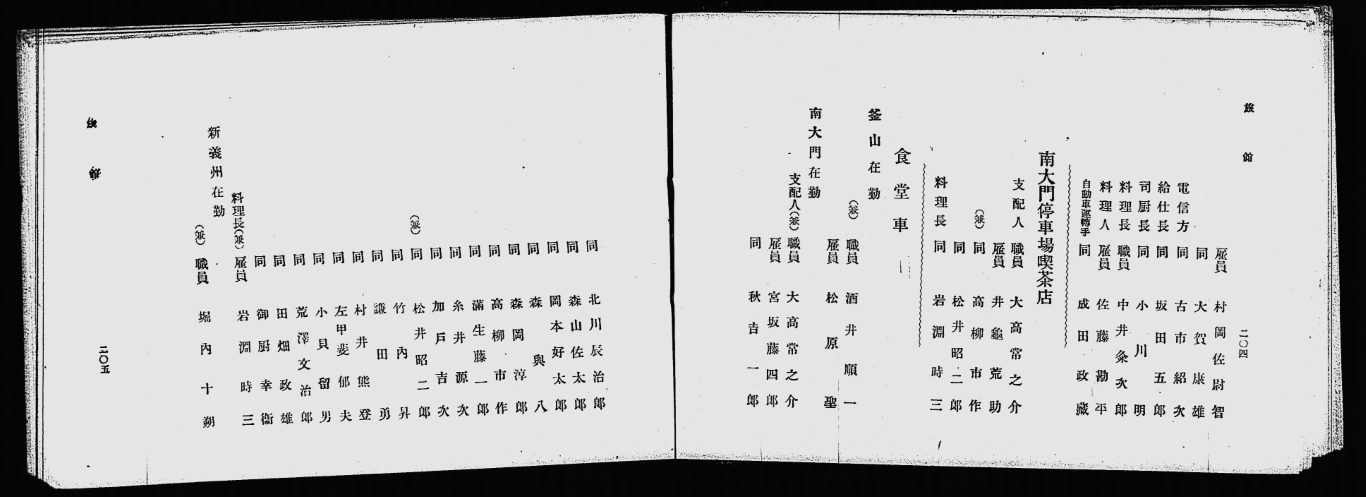 旅館
二〇四
雇員 村岡佐尉智
同 大賀康雄
電信方 同 古市紹次
給仕長 同 坂田五郎
司厨長 同 小川明
料理長 職員 中井粂次郎
料理人 雇員 佐藤勘平
自動車運轉手 同 成田政藏
南大門停車場喫茶店
支配人 職員 大高常之介
雇員 井龜荒助
(兼) 同 高柳市作
同 松井昭二郎
料理長 同 岩淵時三
食堂車
釜山在勤
(兼) 職員 酒井順一
雇員 松原聖
南大門在勤
支配人(兼) 職員 大高常之介
雇員 宮坂藤四郎
同 秋吉一郎
同 北川辰治郎
同 森山佐太郎
同 岡本好太郎
同 森與八
同 森岡淳郎
同 高柳市作
同 滿生藤一郎
同 糸井源次
同 加戸吉次
(兼) 同 松井昭二郎
同 竹内昇
同 田勇
同 村井熊登
同 左甲斐郁夫
同 小貝留男
同 荒澤文治郎
同 田畑政雄
同 御厨幸衞
料理長(兼) 雇員 岩淵時三
新義州在勤
(兼) 職員 堀内十朔
旅館
二〇五